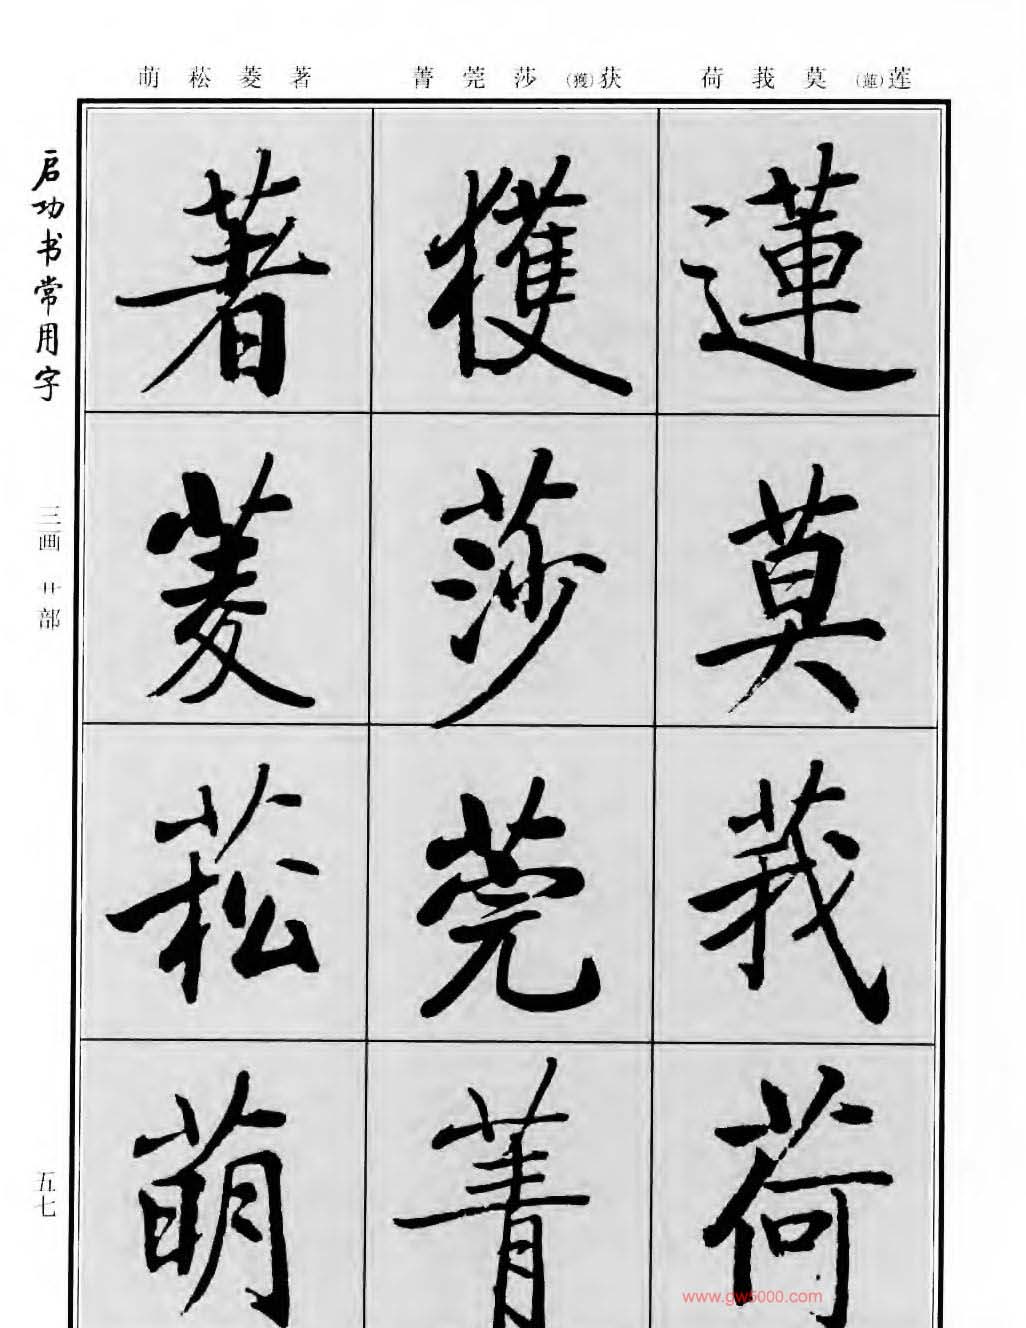 萌 菘 菱 著 菁 莞 莎 (獲)获 荷 莪 莫 (蓮)莲
启功书常用字
三画 艹部
五七
蓮 莫 莪 荷
獲 莎 莞 菁
著 菱 菘 萌
www.gw5000.com